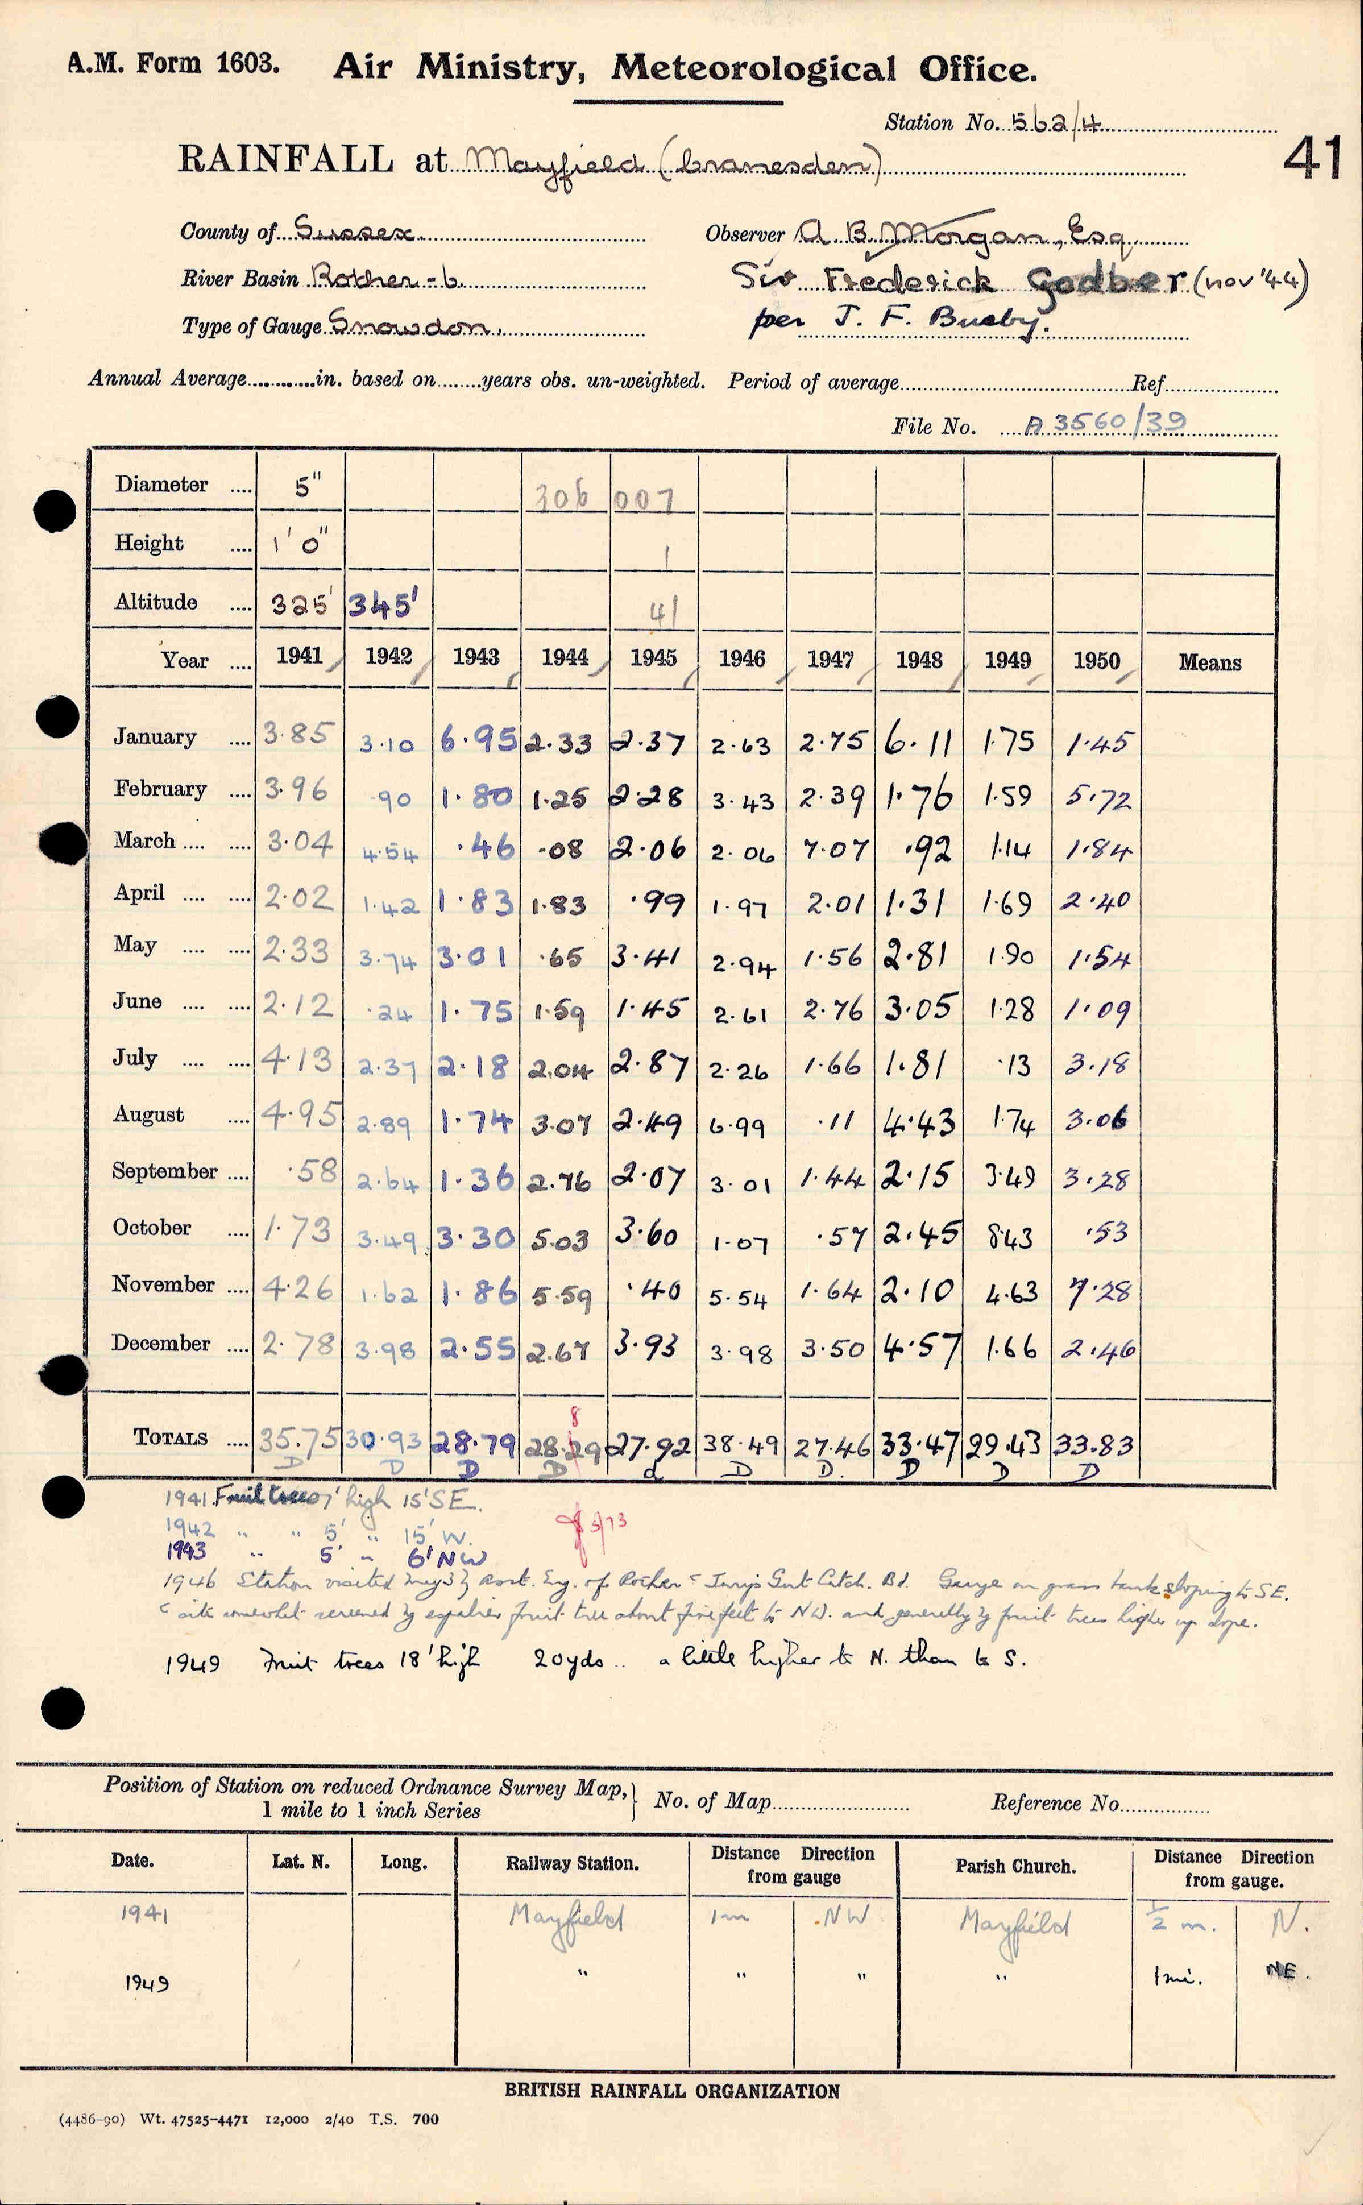 A.M. Form 1603. Air Ministry, Meteorological Office.
Station No. 562/4
41
RAINFALL at Mayfield (Cranesden)
County of Sussex. Observer A. B. Morgan, Esq.
River Basin Rother-6 Sir Frederick Godber (nov '44)
Type of Gauge Snowdon. per J. F. Busby.
Annual Average............in. based on........years obs. un-weighted. Period of average............Ref............
File No. A 3560/39
Diameter .... 5" 306 007
Height .... 1' 0" 1
Altitude .... 325' 345' 41
Year .... 1941 1942 1943 1944 1945 1946 1947 1948 1949 1950 Means
January .... 3.85 3.10 6.95 2.33 2.37 2.63 2.75 6.11 1.75 1.45
February .... 3.96 .90 1.80 1.25 2.28 3.43 2.39 1.76 1.59 5.72
March .... .... 3.04 4.54 .46 .08 2.06 2.06 7.07 .92 1.14 1.84
April .... .... 2.02 1.42 1.83 1.83 .99 1.97 2.01 1.31 1.69 2.40
May .... .... 2.33 3.74 3.01 .65 3.41 2.94 1.56 2.81 1.90 1.54
June .... .... 2.12 .24 1.75 1.59 1.45 2.61 2.76 3.05 1.28 1.09
July .... .... 4.13 2.37 2.18 2.04 2.87 2.26 1.66 1.81 .13 3.18
August .... 4.95 2.89 1.74 3.07 2.49 6.99 .11 4.43 1.74 3.06
September .... .58 2.64 1.36 2.76 2.07 3.01 1.44 2.15 3.49 3.28
October .... 1.73 3.49 3.30 5.03 3.60 1.07 .57 2.45 8.43 .53
November .... 4.26 1.62 1.86 5.59 .40 5.54 1.64 2.10 4.63 7.28
December .... 2.78 3.98 2.55 2.67 3.93 3.98 3.50 4.57 1.66 2.46
8
TOTALS .... 35.75 30.93 28.79 28.29 27.92 38.49 27.46 33.47 29.43 33.83
D D D D d D D. D D D
1941. Fruit trees 7' high 15' SE.
1942 " " 5' " 15' W.
3/73
1943 " 5' " 6' NW
1946 Station visited May 3 by Asst. Eng. of Rother Catch. Bd. Gauge on grass bank sloping to SE.
site somewhat screened by espalier fruit tree about five feet to NW. and generally by fruit trees higher up slope.
1949 Fruit trees 18' high 20yds .. a little higher to N. than to S.
Position of Station on reduced Ordnance Survey Map, } No. of Map............ Reference No............
1 mile to 1 inch Series
Date. Lat. N. Long. Railway Station. Distance Direction from gauge Parish Church. Distance Direction from gauge.
1941 Mayfield 1m NW Mayfield 1/2 m. N.
1949 " " " " 1 mi. NE.
BRITISH RAINFALL ORGANIZATION
(4486-90) Wt. 47525-4471 12,000 2/40 T.S. 700